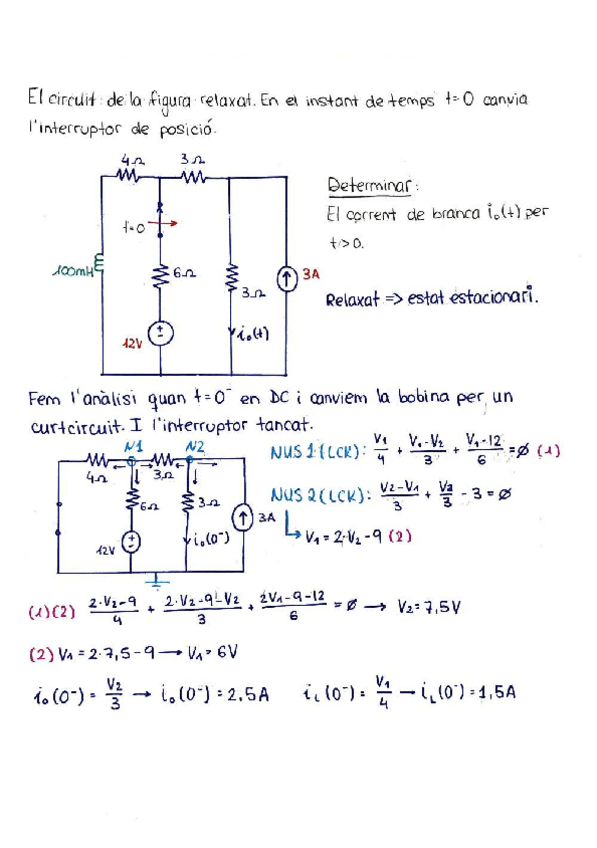 El circuit de la figura relaxat. En el instant de temps t=0 canvia
l'interruptor de posició.
4Ω 3Ω
Determinar:
El corrent de branca i₀(t) per
t>0.
t=0
100mH
6Ω
3Ω
3A
Relaxat => estat estacionari.
12V
i₀(t)
Fem l'anàlisi quan t=0⁻ en DC i canviem la bobina per un
curtcircuit. I l'interruptor tancat.
N1 N2
4Ω 3Ω
6Ω
3Ω
3A
12V
i₀(0⁻)
NUS 1 (LCK): V₁/4 + (V₁-V₂)/3 + (V₁-12)/6 = ø (1)
NUS 2 (LCK): (V₂-V₁)/3 + V₂/3 - 3 = ø
V₁ = 2·V₂ - 9 (2)
(1)(2) (2·V₂-9)/4 + (2·V₂-9-V₂)/3 + (2V₁-9-12)/6 = ø → V₂=7,5V
(2) V₁ = 2·7,5-9 → V₁ = 6V
i₀(0⁻) = V₂/3 → i₀(0⁻) = 2,5A i_L(0⁻) = V₁/4 → i_L(0⁻) = 1,5A